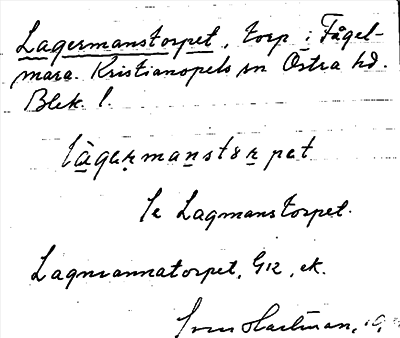 Lagermanstorpet, torp i Fågel-
mara. Kristianopels sn Östra hd.
Blek. l.
lägermanstɛrpet
Se Lagmanstorpet.
Lagmannatorpet, G12, ek.
Sven Hartman,